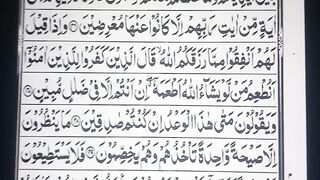 اٰيَةٍ مِّنْ اٰيٰتِ رَبِّهِمْ اِلَّا كَانُوْا عَنْهَا مُعْرِضِيْنَ ۝ وَاِذَا قِيْلَ
لَهُمْ اَنْفِقُوْا مِمَّا رَزَقَكُمُ اللّٰهُ ۙ قَالَ الَّذِيْنَ كَفَرُوْا لِلَّذِيْنَ اٰمَنُوْٓا
اَنُطْعِمُ مَنْ لَّوْ يَشَآءُ اللّٰهُ اَطْعَمَهٗٓ ۖ اِنْ اَنْتُمْ اِلَّا فِيْ ضَلٰلٍ مُّبِيْنٍ ۝
وَيَقُوْلُوْنَ مَتٰى هٰذَا الْوَعْدُ اِنْ كُنْتُمْ صٰدِقِيْنَ ۝ مَا يَنْظُرُوْنَ
اِلَّا صَيْحَةً وَّاحِدَةً تَاْخُذُهُمْ وَهُمْ يَخِصِّمُوْنَ ۝ فَلَا يَسْتَطِيْعُوْنَ